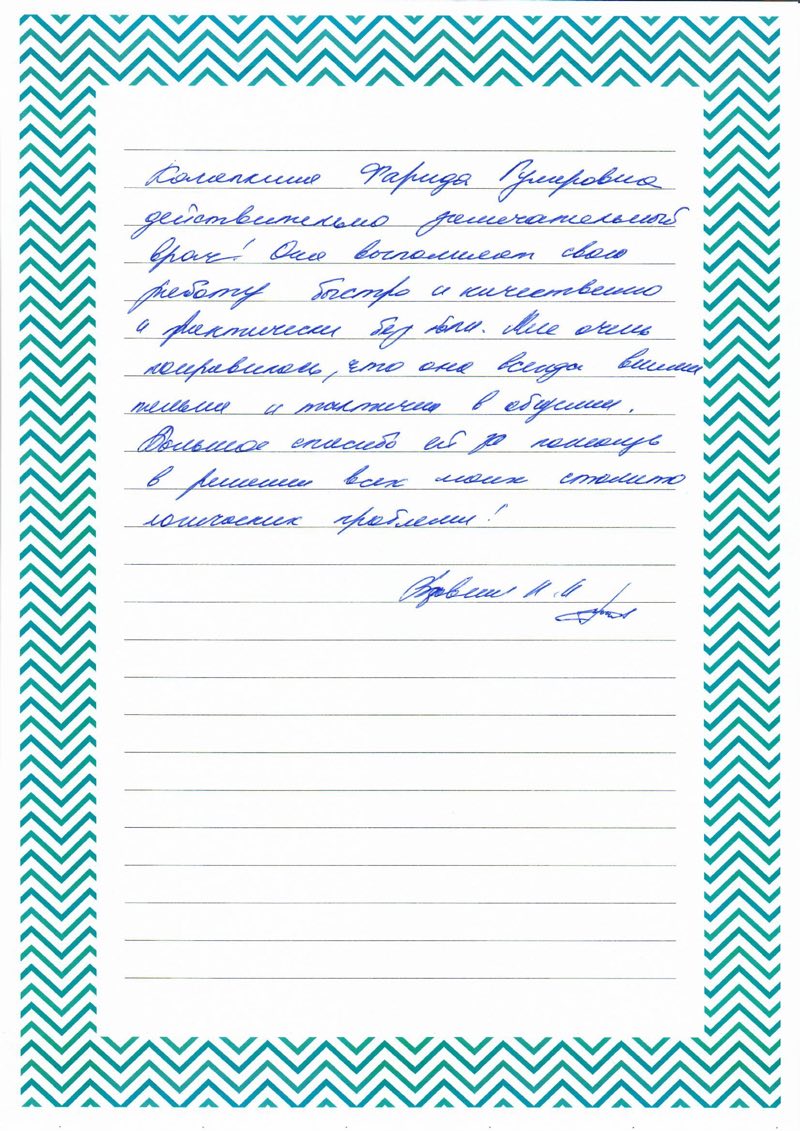 Фарида Гумеровна
действительно замечательный
врач! Она выполняет свою
работу быстро и качественно
и практически без боли. Мне очень
понравилось, что она всегда внима
тельна и тактична в общении.
Большое спасибо ей за помощь
в решении всех моих стомато
логических проблем!
И. И